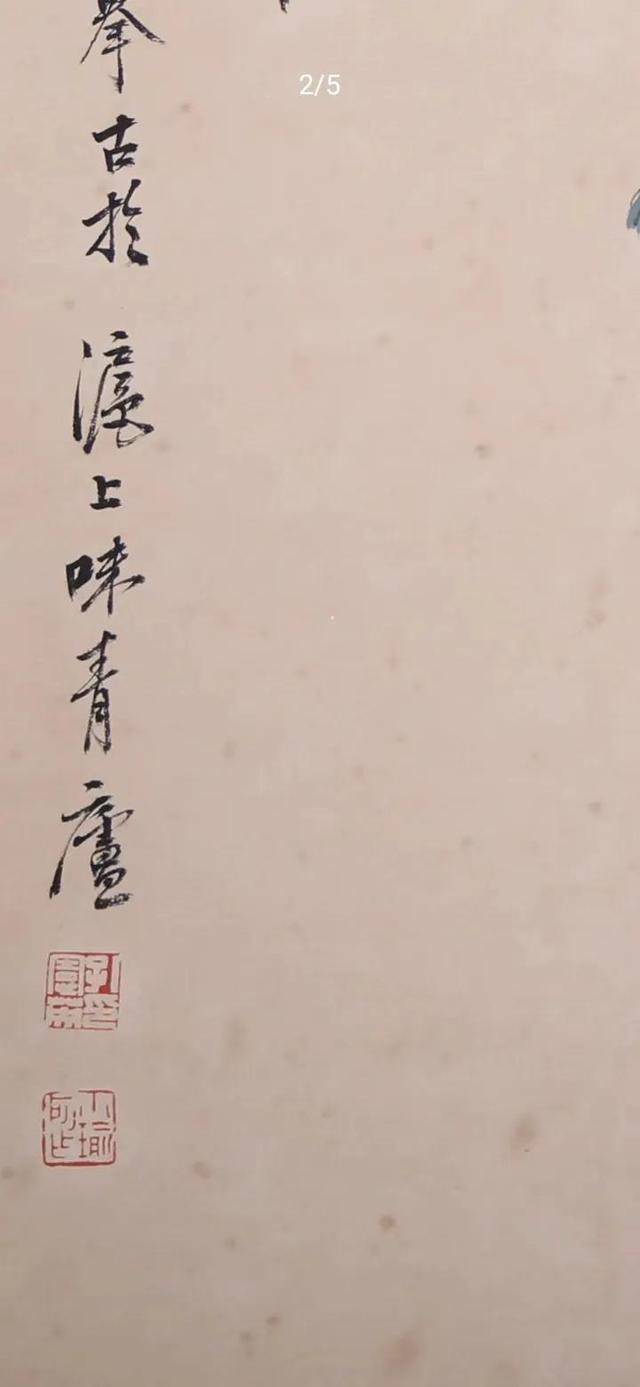 2/5
摹古於滬上味青廬